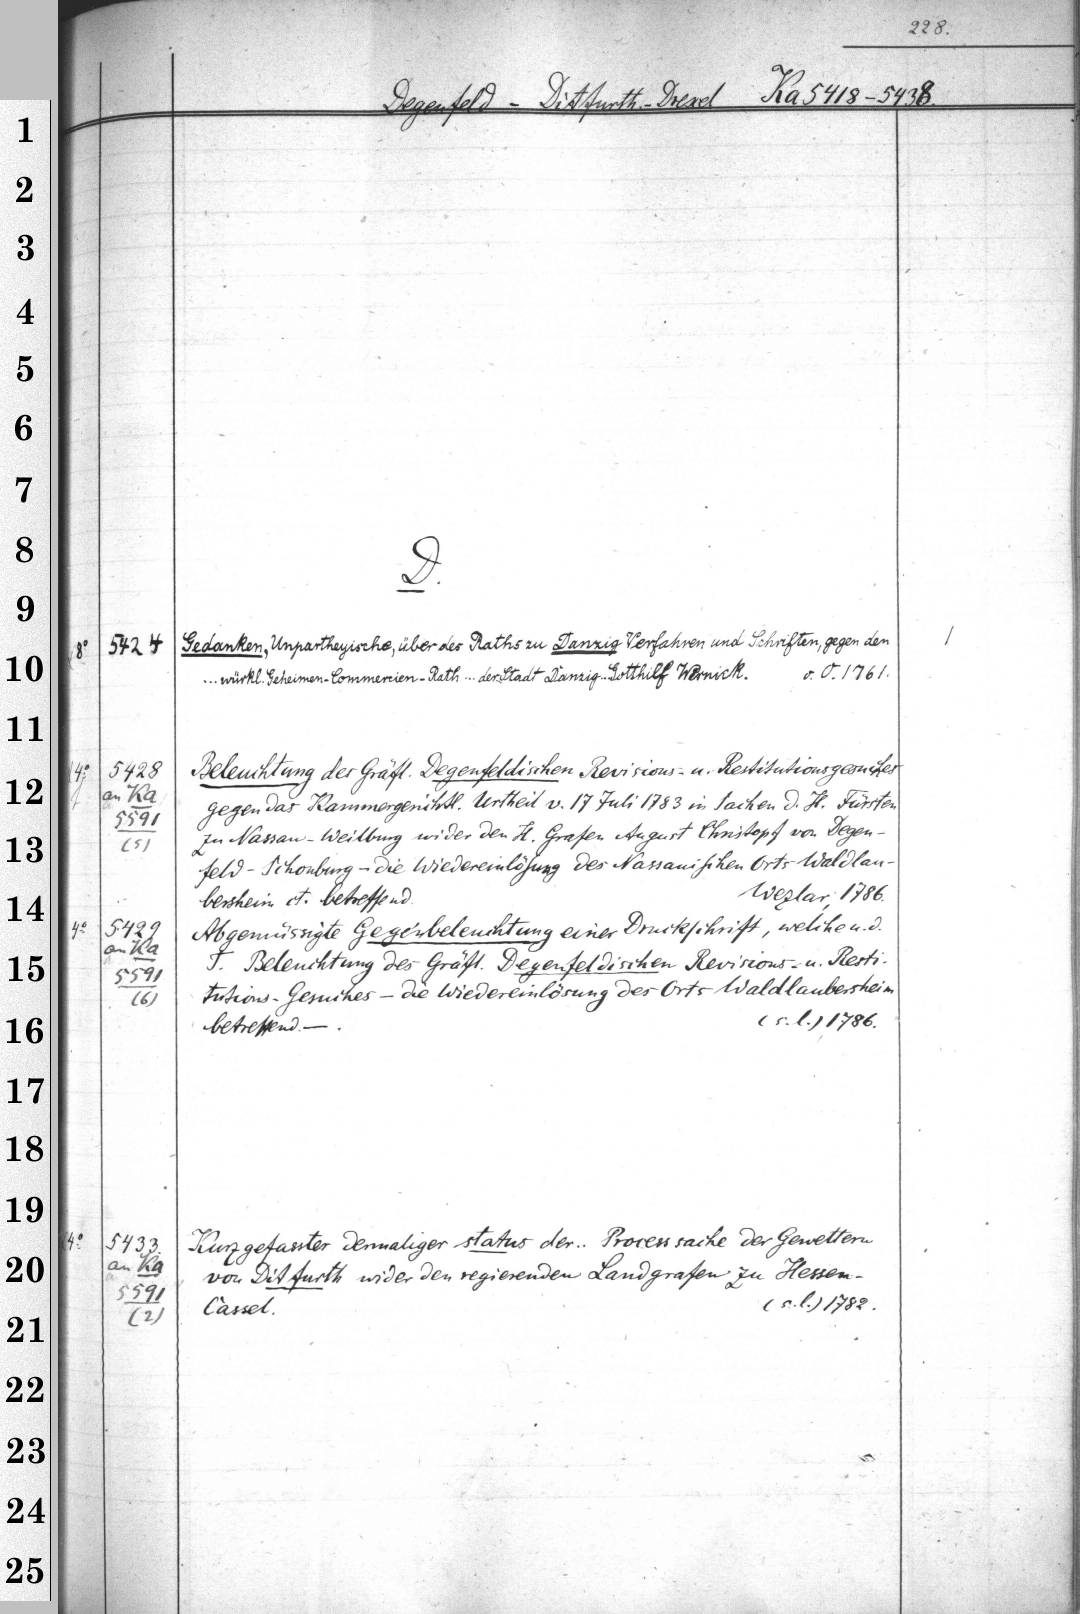 228.
Degenfeld - Ditfurth - Drexel Ka 5418-5438
1
2
3
4
5
6
7
8
D.
9
8° 5424 Gedanken, Unpartheyische, über des Raths zu Danzig Verfahren und Schriften, gegen den 1
10
... würkl. Geheimen-Commercien-Rath ... der Stadt Danzig.. Gotthilf Wernick. o. O. 1761.
11
4° 5428 Beleuchtung der Gräfl. Degenfeldischen Revisions- u. Restitutionsgesuches
12
an Ka gegen das Kammergerichtl. Urtheil v. 17 Juli 1783 in Sachen d. H. Fürsten
5591 zu Nassau-Weilburg wider den H. Grafen August Christoph von Degen-
(5)
13
feld-Schonburg - die Wiedereinlösung des Nassauischen Orts Waldlau-
bersheim ct. betreffend. Wezlar, 1786.
14
4° 5429 Abgemüssigte Gegenbeleuchtung einer Druckschrift, welche u. d.
an Ka T. Beleuchtung des Gräfl. Degenfeldischen Revisions- u. Resti-
15
5591 tutions-Gesuches - die Wiedereinlösung des Orts Waldlaubersheim
(6)
16
betreffend. — . (s. l.) 1786.
17
18
19
4° 5433. Kurzgefasster dermaliger status der.. Processsache der Gevettern
20
an Ka von Ditfurth wider den regierenden Landgrafen zu Hessen-
5591 Cassel. (s. l.) 1782.
(2)
21
22
23
24
25